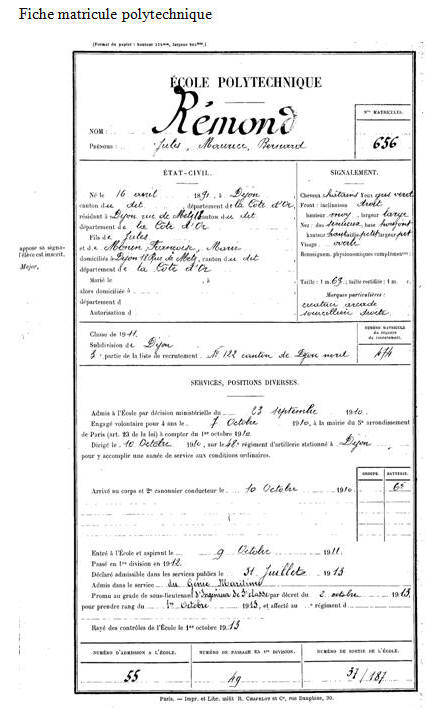 Fiche matricule polytechnique
(Format du papier : hauteur 321mm, largeur 204mm.)
ÉCOLE POLYTECHNIQUE
Nos MATRICULES.
NOM : Rémond
PRÉNOMS : Jules, Maurice, Bernard
656
ÉTAT-CIVIL.
SIGNALEMENT.
Né le 16 avril 1891, à Dijon
canton du dit département de la Côte d'Or
résidant à Dijon, rue de Metz 18 canton du dit
département de la Côte d'Or
Fils de Jules
et de Françoise, Marie
domiciliés à Dijon 18 Rue de Metz, canton du dit
département de la Côte d'Or
Marié le , à
alors domiciliée à
département d
Autorisation d
appose sa signa-
l'élève est inscrit.
Major,
Cheveux chatains Yeux gris vert
Front : inclinaison droit
hauteur moy , largeur large
Nez : dos sinueux, base
hauteur saillie petit largeur pet
Visage : ovale
Renseignem. physionomiques complémentres :
Taille : 1 m. 63 ; taille rectifiée : 1 m. c.
Marques particulières :
arcade
sourcilière droite
Classe de 1911.
Subdivision de Dijon
partie de la liste de recrutement. No 122 canton de Dijon nord
NUMÉRO MATRICULE
du registre
du recrutement.
474
SERVICES, POSITIONS DIVERSES.
Admis à l'École par décision ministérielle du 23 septembre 1910.
Engagé volontaire pour 4 ans le 7 Octobre 1910, à la mairie du 5e arrondissement
de Paris (art. 23 de la loi) à compter du 1er octobre 1910
Dirigé le 10 Octobre 1910, sur le 48e régiment d'artillerie stationné à Dijon
pour y accomplir une année de service aux conditions ordinaires.
GROUPE. BATTERIE.
Arrivé au corps et 2e canonnier conducteur le 10 Octobre 1910
6e
Entré à l'École et aspirant le 9 Octobre 1911.
Passé en 1re division en 1912.
Déclaré admissible dans les services publics le 31 Juillet 1913
Admis dans le service du Génie Maritime
Promu au grade de sous-lieutenant d'Ingénieur de 3e classe par décret du 2 octobre 1913
pour prendre rang du 1er Octobre 1913, et affecté au e régiment d
Rayé des contrôles de l'École le 1er octobre 1913
NUMÉRO D'ADMISSION A L'ÉCOLE. NUMÉRO DE PASSAGE EN 1re DIVISION. NUMÉRO DE SORTIE DE L'ÉCOLE.
55 49 37/187
Paris. — Impr. et Libr. milit R. CHAPELOT et Ce, rue Dauphine, 30.